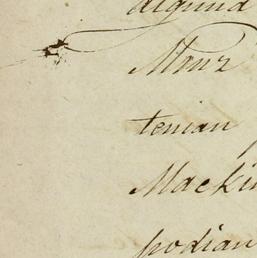 algund
Mruz
tenian
Mackin
podian